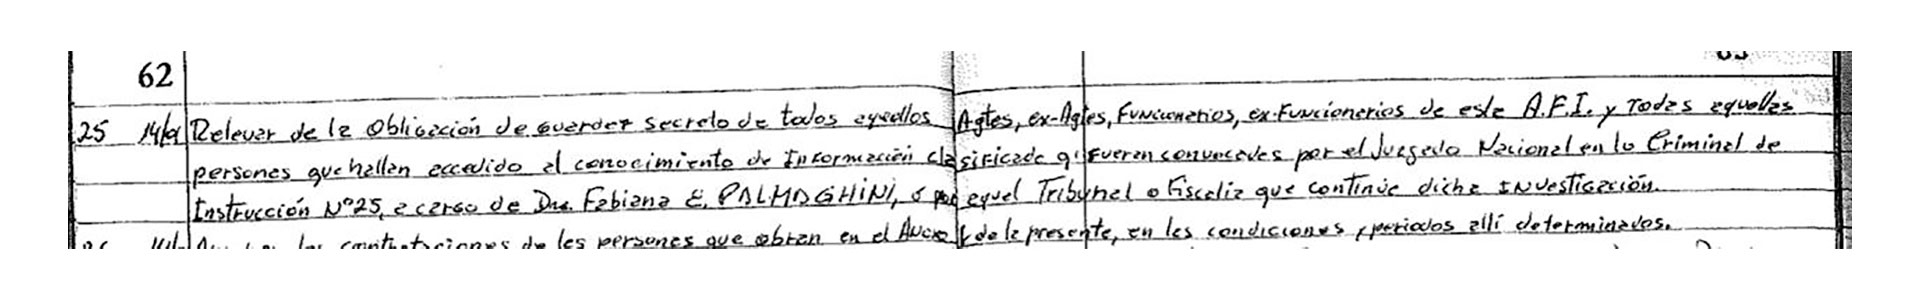 62
25 14/9 Relevar de la Obligación de guardar secreto de todos aquellos Agtes, ex-Agtes, Funcionarios, ex-Funcionarios de esta A.F.I. y Todas aquellas
personas que hallan accedido al conocimiento de Información clasificada q' fueran convocadas por el Juzgado Nacional en lo Criminal de
Instrucción Nº25, a cargo de Dra. Fabiana E. PALMAGHINI, ó por aquel Tribunal o Fiscalía que continúe dicha INVestigación.
las contrataciones de las personas que obran en el Anexo I de la presente, en las condiciones y periodos allí determinados.